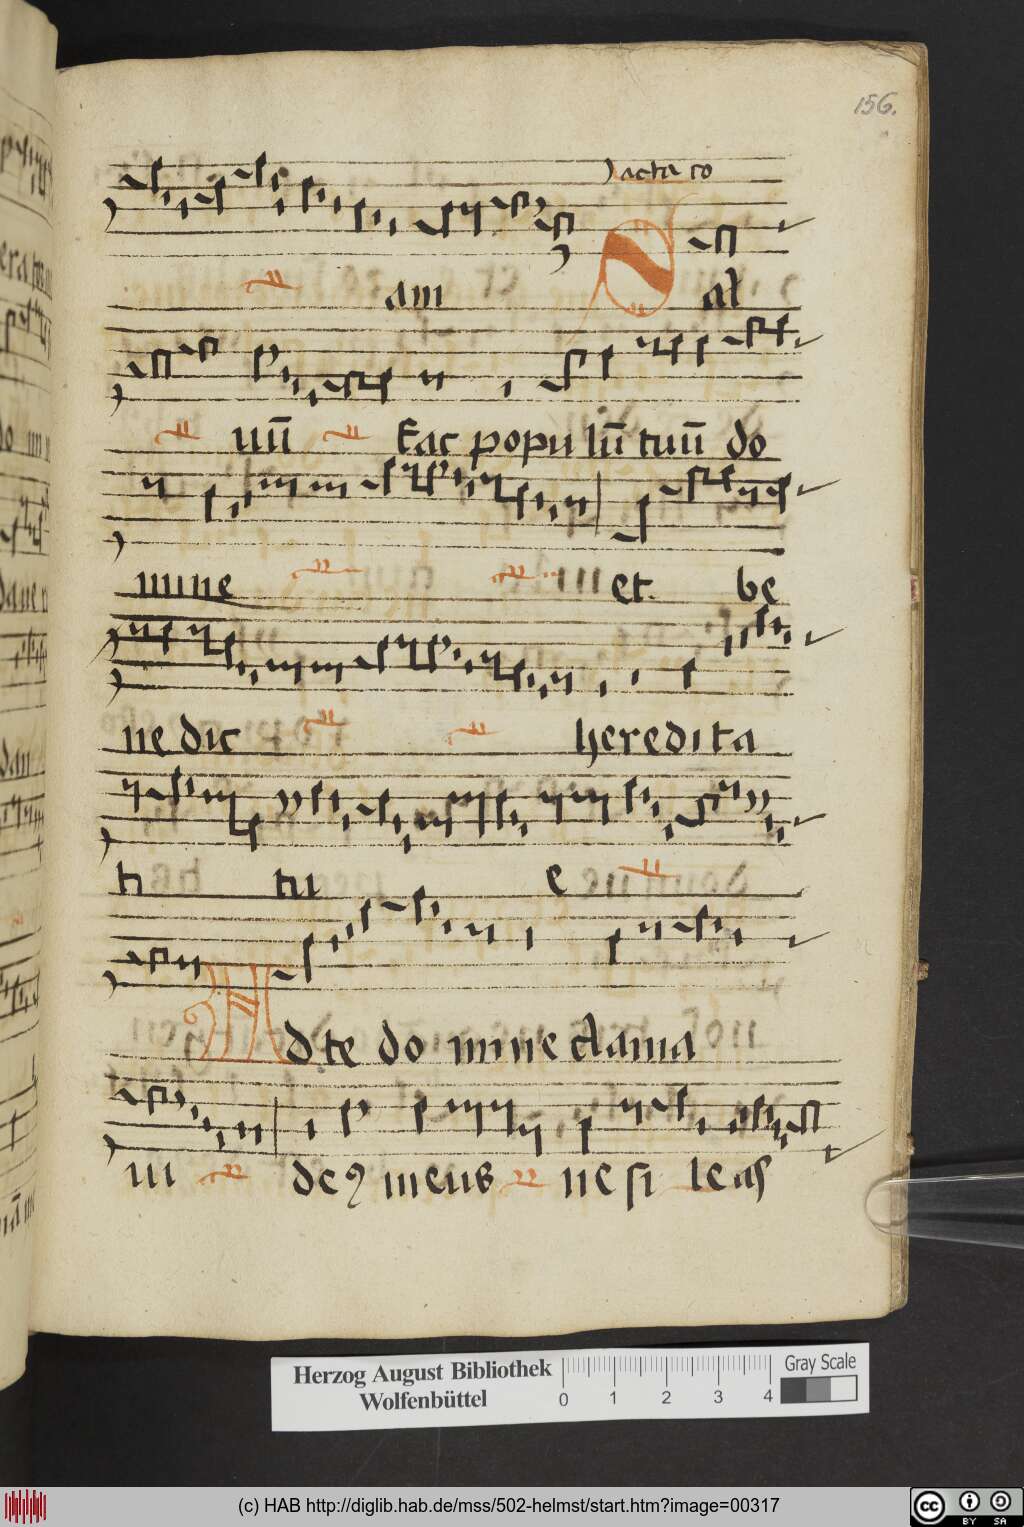 156.
Jacta co
am Sal
uū Fac popu lū tuū do
mine et be
ne dic heredita
ti tu e
Ad te do mine clama
ui deꝰ meus ne si leas
Herzog August Bibliothek
Wolfenbüttel
0 1 2 3 4
Gray Scale
(c) HAB http://diglib.hab.de/mss/502-helmst/start.htm?image=00317
cc BY SA